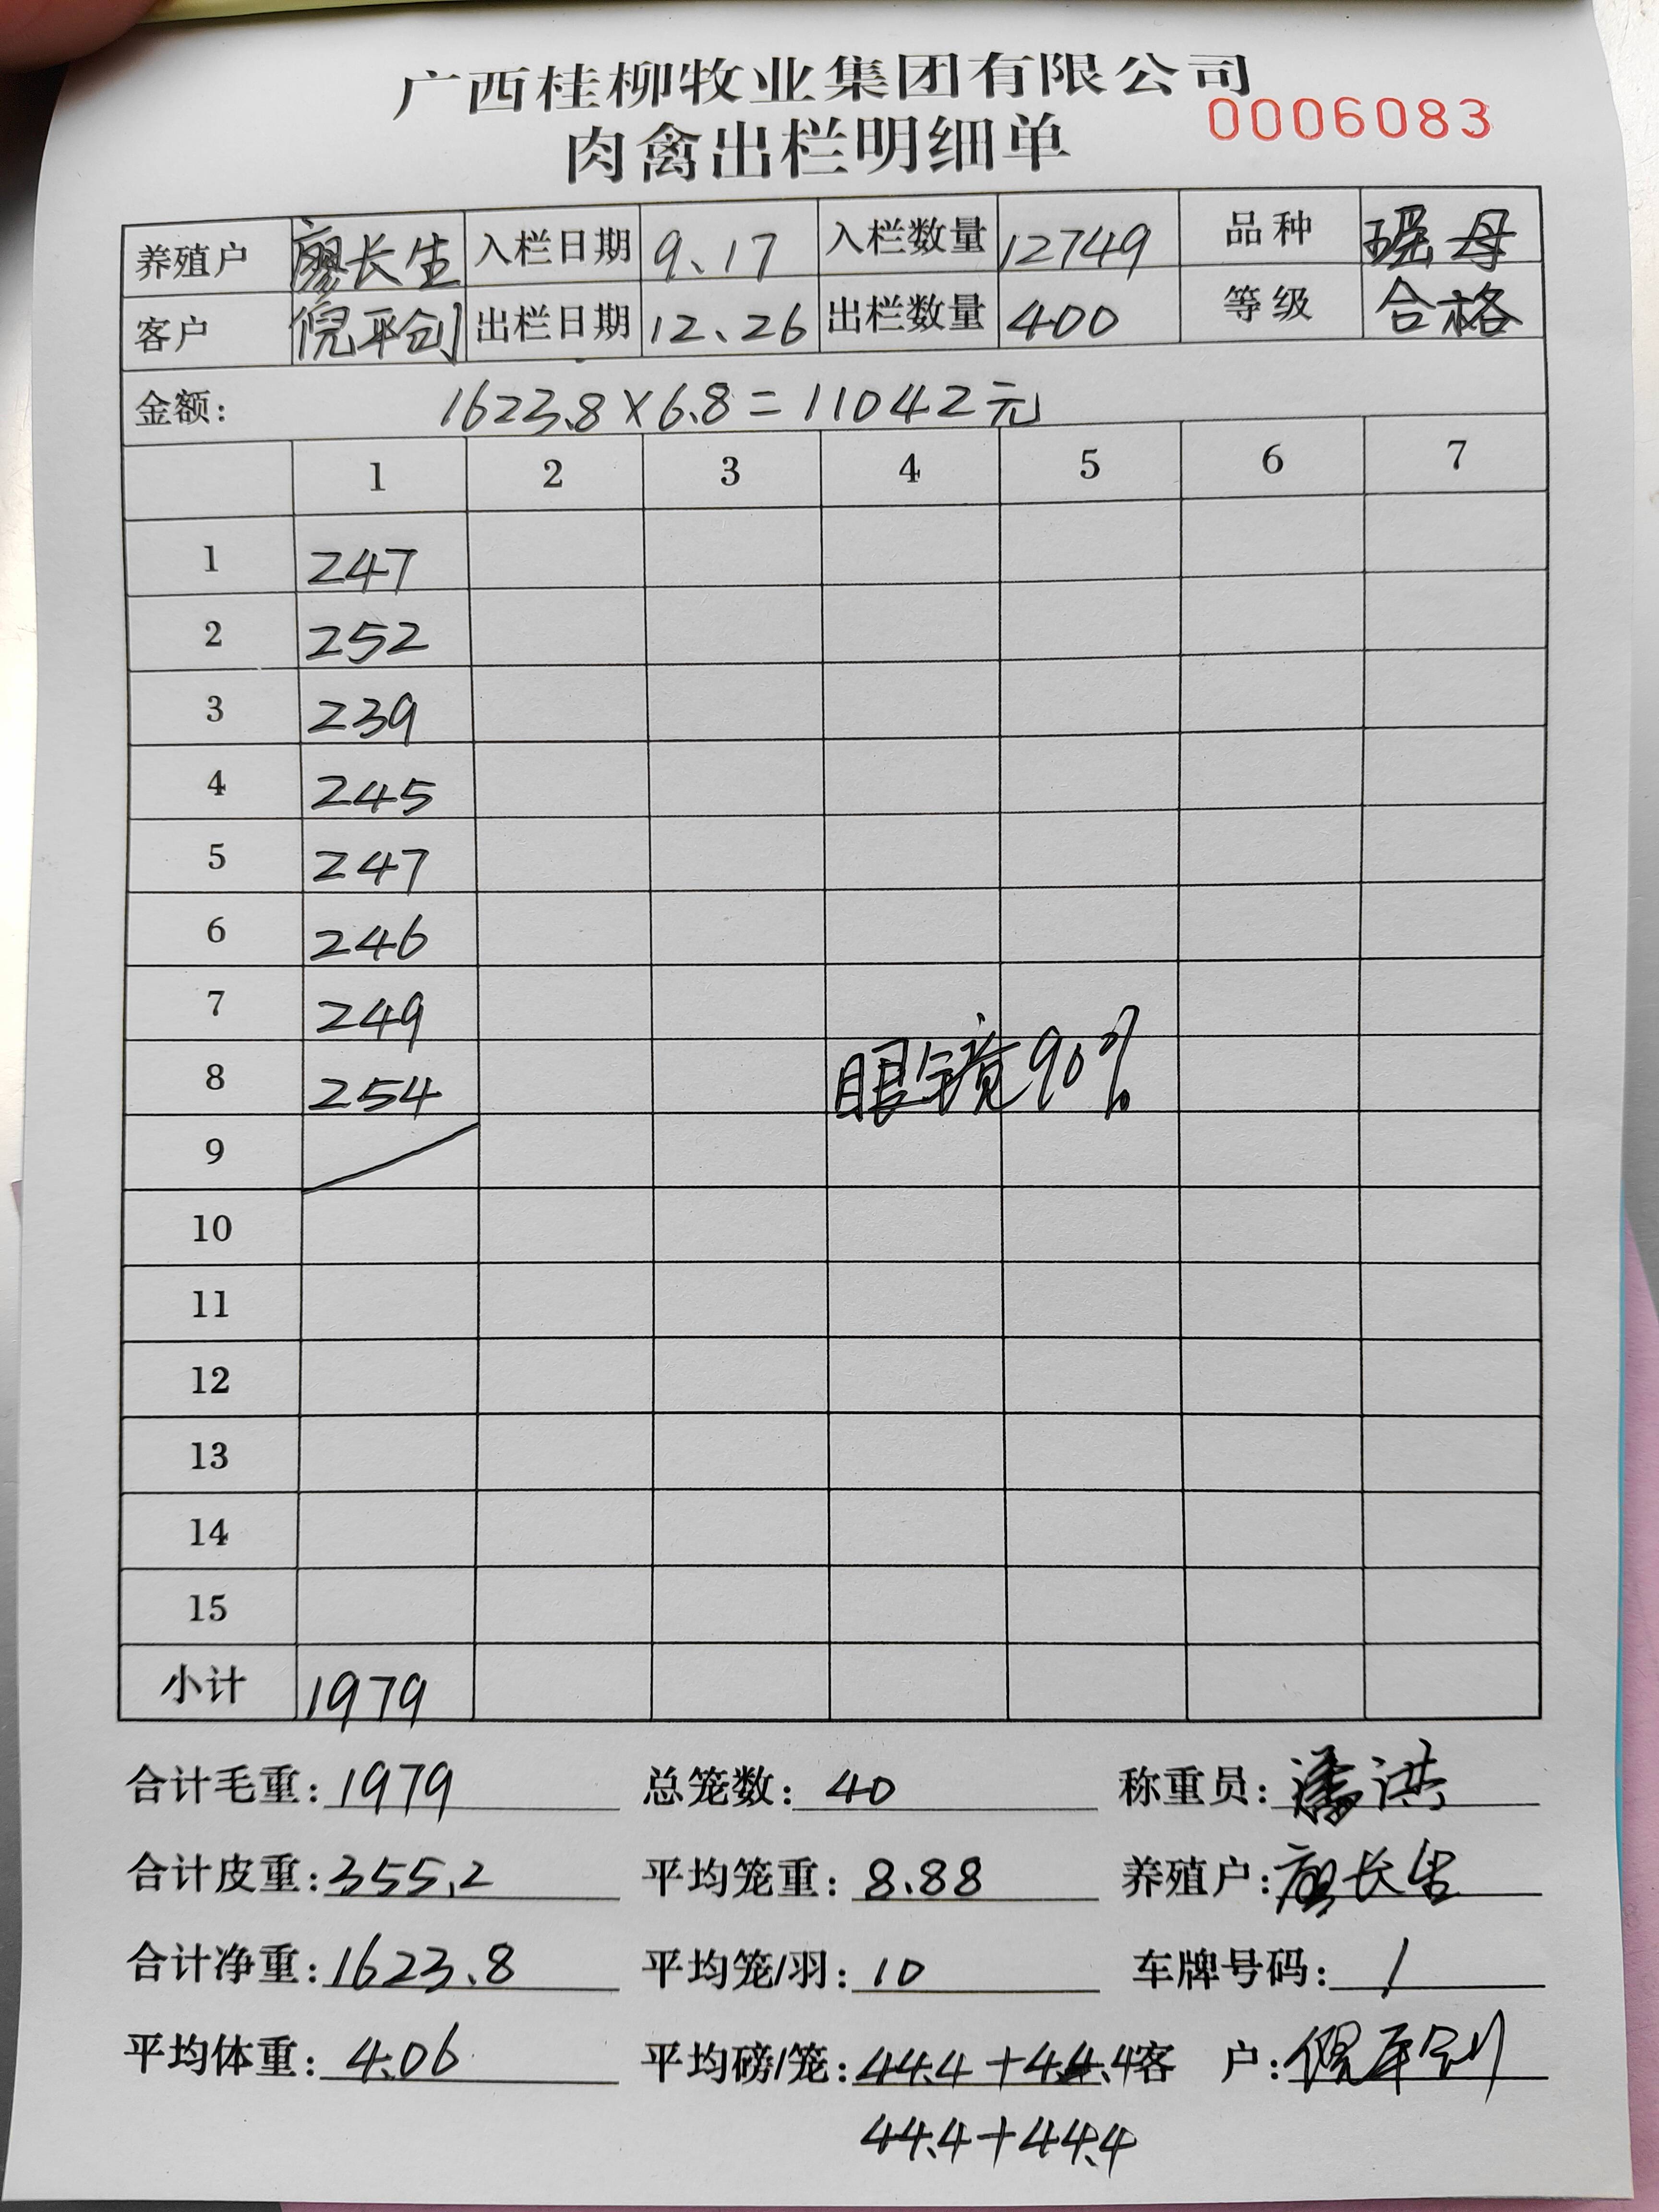 广西桂柳牧业集团有限公司
肉禽出栏明细单 0006083
养殖户 廖长生 入栏日期 9、17 入栏数量 12749 品种 瑶母
客户 倪平创 出栏日期 12、26 出栏数量 400 等级 合格
金额: 1623.8×6.8=11042元
1 2 3 4 5 6 7
1 247
2 252
3 239
4 245
5 247
6 246
7 249
8 254 眼镜90%
9
10
11
12
13
14
15
小计 1979
合计毛重: 1979 总笼数: 40 称重员: 潘洪
合计皮重: 355.2 平均笼重: 8.88 养殖户: 廖长生
合计净重: 1623.8 平均笼/羽: 10 车牌号码: /
平均体重: 4.06 平均磅/笼: 44.4+44.4 客户: 倪平创
44.4+44.4